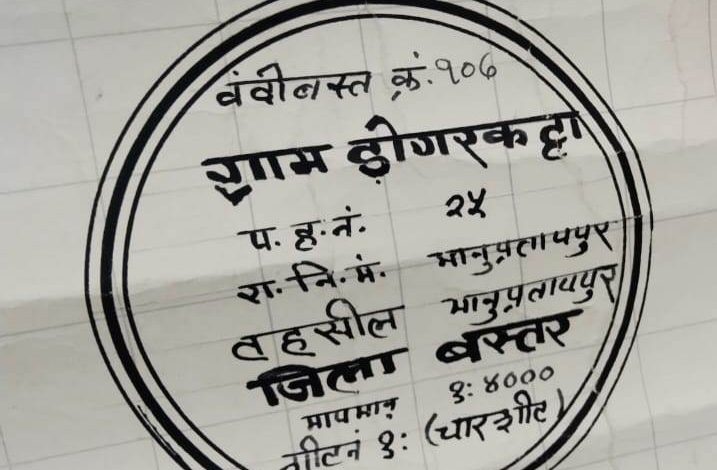 वंदोबस्त क्रं. १०६
ग्राम डोंगरकट्टा
प. ह. नं. २५
रा. नि. मं. भानुप्रतापपुर
तहसील भानुप्रतापपुर
जिला बस्तर
मापमान १: ४०००
शीट नं १: (चारशीट)